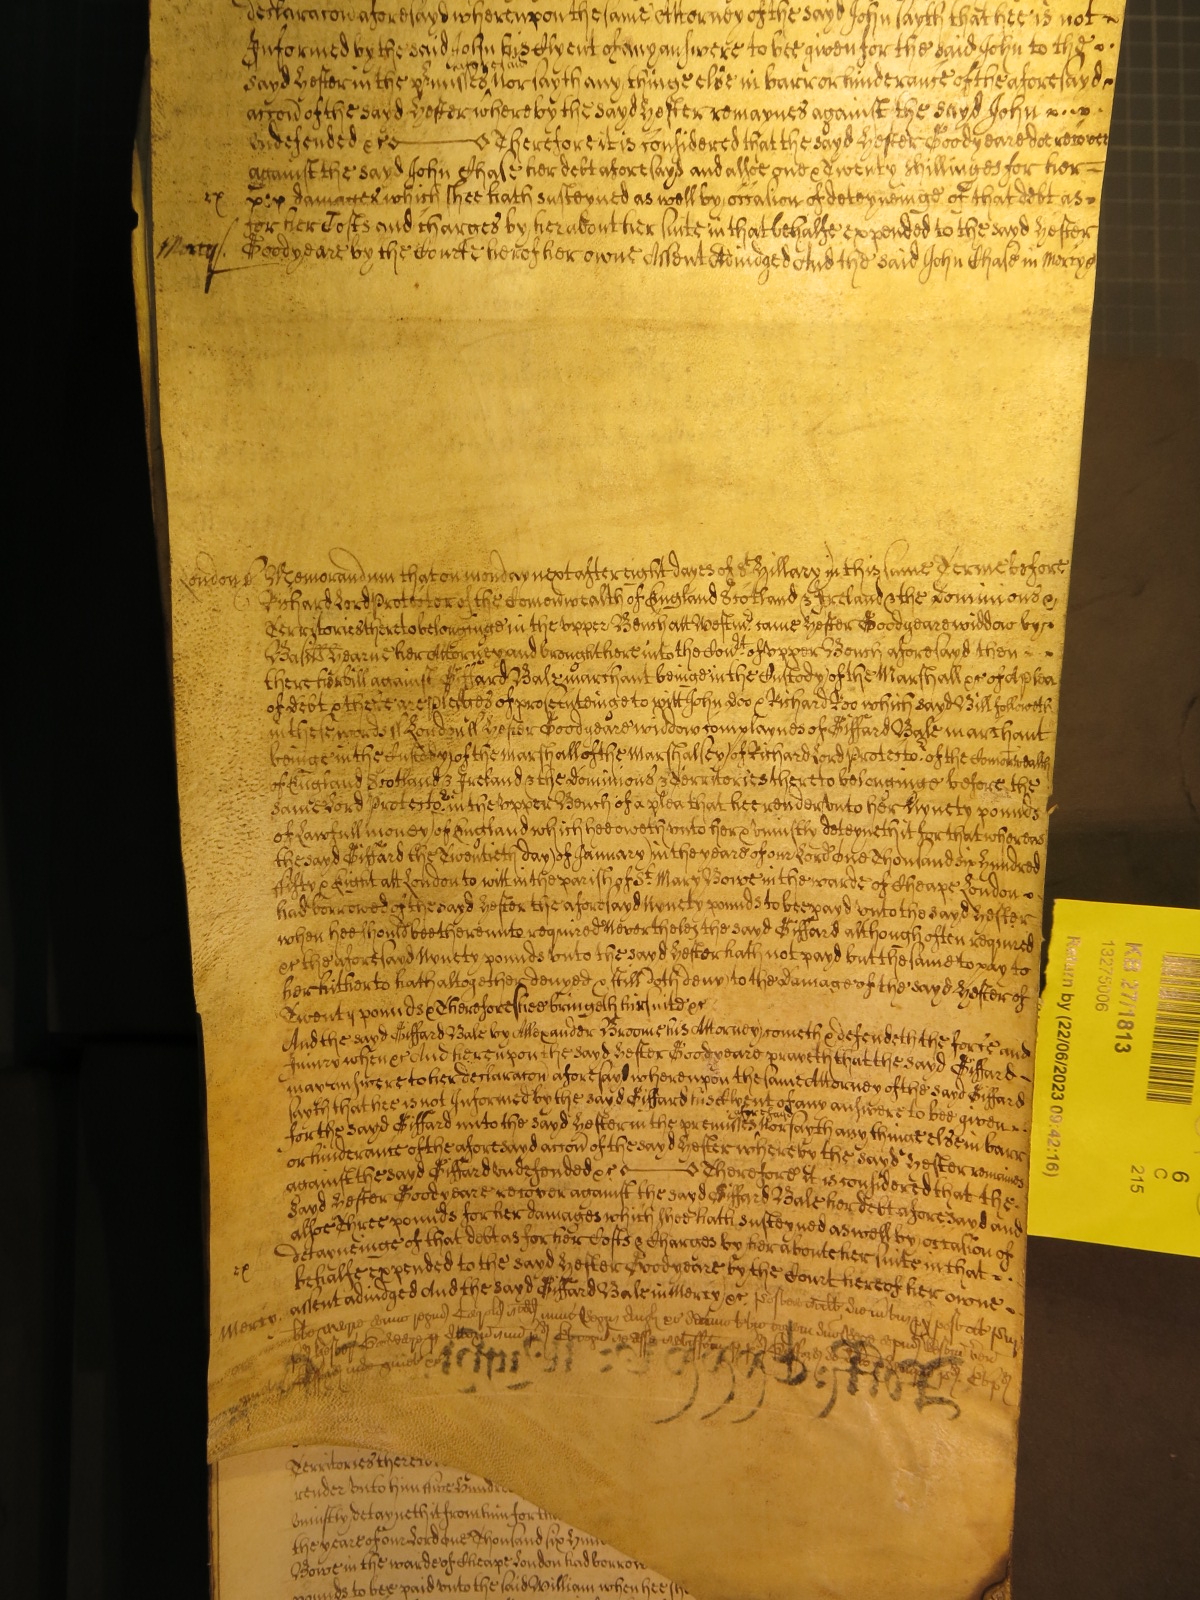 declaracon aforesayd whereupon the same Attorney of the sayd John sayth that hee is not
Informed by the said John his Clyent of any answere to bee given for the said John to the
sayd Hester in the p'misses Nor sayth any thinge else in barr or hinderance of the aforesayd
accon of the sayd Hester whereby the sayd Hester remaynes against the sayd John
undefended &c Therefore it is considered that the sayd Hester Goodyeare doe recover
against the sayd John Chase her debt aforesayd and alsoe Twenty shillinges for her
ex
damages which shee hath susteyned as well by occasion of deteyneinge of that debt as
for her Costs and charges by her about her suite in that behalfe expended to the sayd Hester
Mercy
Goodyeare by the Courte hereof her owne Assent Adiudged And the said John Chase in Mercy &c
London ss Memorandum that on monday next after eight dayes of St Hillary in this same Terme before
Richard Lord Protector of the Comonwealth of England Scotland & Ireland & the Dominions &
Territories thereto belonginge in the upper Bench att Westmr came Hester Goodyeare widdow by
Yearne her Attorney and brought here into the Court of upper Bench aforesayd then
there her bill against Giffard Bale marchant beinge in the Custody of the Marshall &c of a plea
of debt & there are pledges of prosecuteinge to witt John Doo & Richard Roo which sayd Bill followeth
in these words ss London ss Hester Goodyeare widdow complaynes of Giffard Bale marchant
beinge in the Custody of the marshall of the Marshalsey of Richard Lord Protector of the Comonwealth
of England Scotland & Ireland & the dominions & Territories thereto belonginge before the
same Lord Protector in the upper Bench of a plea that hee render unto her Nynety pounds
of lawfull money of England which hee oweth unto her & uniustly deteyneth it for that whereas
the sayd Giffard the Twentieth day of January in the yeare of our Lord one Thousand six Hundred
fifty & Eight att London to witt in the parish of St Mary Bowe in the warde of Cheape London
had borrowed of the sayd Hester the aforesayd Nynety pounds to bee payd unto the sayd Hester
when hee should bee thereunto required Neverthelez the sayd Giffard although often required
&c the aforesayd Nynety pounds unto the sayd Hester hath not payd but the same to pay to
her hitherto hath altogether denyed & still doth deny to the damage of the sayd Hester of
Twenty pounds & Therefore shee bringeth her suite &c
And the sayd Giffard Bale by Allexander Broome his Attorney cometh & defendeth the force and
Iniury when &c And hereupon the sayd Hester Goodyeare prayeth that the sayd Giffard
may answere to her declaracon aforesayd whereupon the same Attorney of the sayd Giffard
sayth that hee is not Informed by the sayd Giffard his Clyent of any answere to bee given
for the sayd Giffard unto the sayd Hester in the premisses aforesayd Nor sayth any thing else in barr
or hinderance of the aforesayd accon of the sayd Hester whereby the sayd Hester remaines
against the sayd Giffard undefended &c Therefore It is considered that the
sayd Hester Goodyeare recover against the sayd Giffard Bale her debt aforesayd and
alsoe Three pounds for her damages which shee hath susteyned as well by occasion of
detayneinge of that debt as for her Costs & Charges by her aboute her suite in that
ex
behalfe expended to the sayd Hester Goodyeare by the Court hereof her owne
Mercy
assent adiudged And the sayd Giffard Bale in Mercy &c
Territories thereto
render unto him five Hundred
uniustly detayneth it from him for th
the yeare of our Lord one Thousand six Hun
Bowe in the warde of Cheape London had borrow
pounds to bee paid unto the said William when hee sh
KB 27/1813
13275006
Return by (22/06/2023 09:42:16)
6
C
215